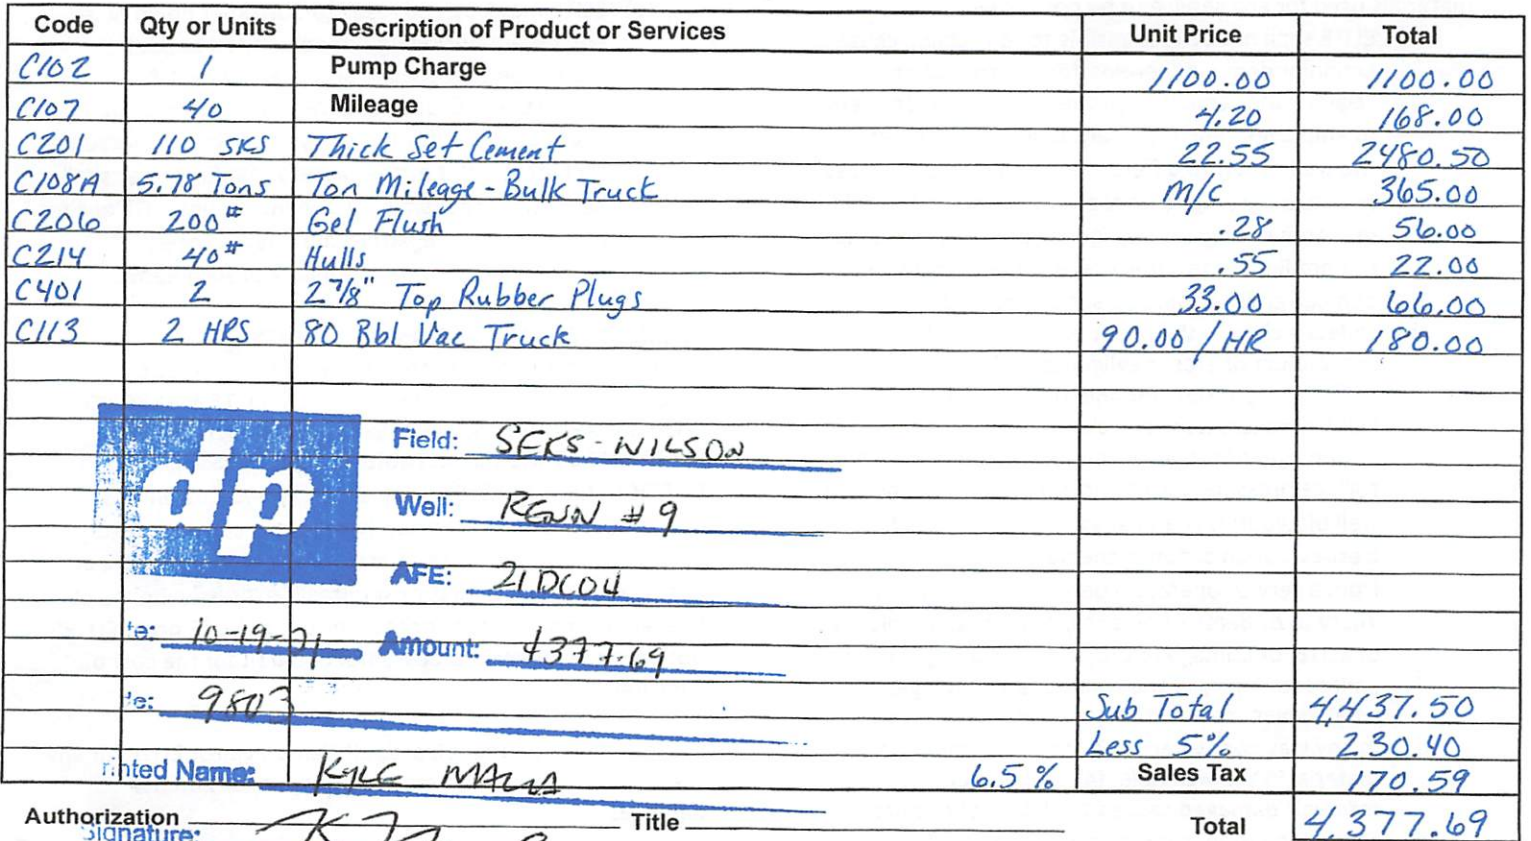 Code Qty or Units Description of Product or Services Unit Price Total
C102 1 Pump Charge 1100.00 1100.00
C107 40 Mileage 4.20 168.00
C201 110 SKS Thick Set Cement 22.55 2480.50
C108A 5.78 Tons Ton Mileage - Bulk Truck m/c 365.00
C206 200# Gel Flush .28 56.00
C214 40# Hulls .55 22.00
C401 2 2 7/8" Top Rubber Plugs 33.00 66.00
C113 2 HRS 80 Bbl Vac Truck 90.00 / HR 180.00
dp
Field: SEKS - WILSON
Well: #9
AFE: 21DC04
te: 10-19-21 Amount: 4377.69
te: 9803
Sub Total 4,437.50
Less 5% 230.40
rinted Name: KYLE 6.5% Sales Tax 170.59
Authorization Title Total 4,377.69
Signature: